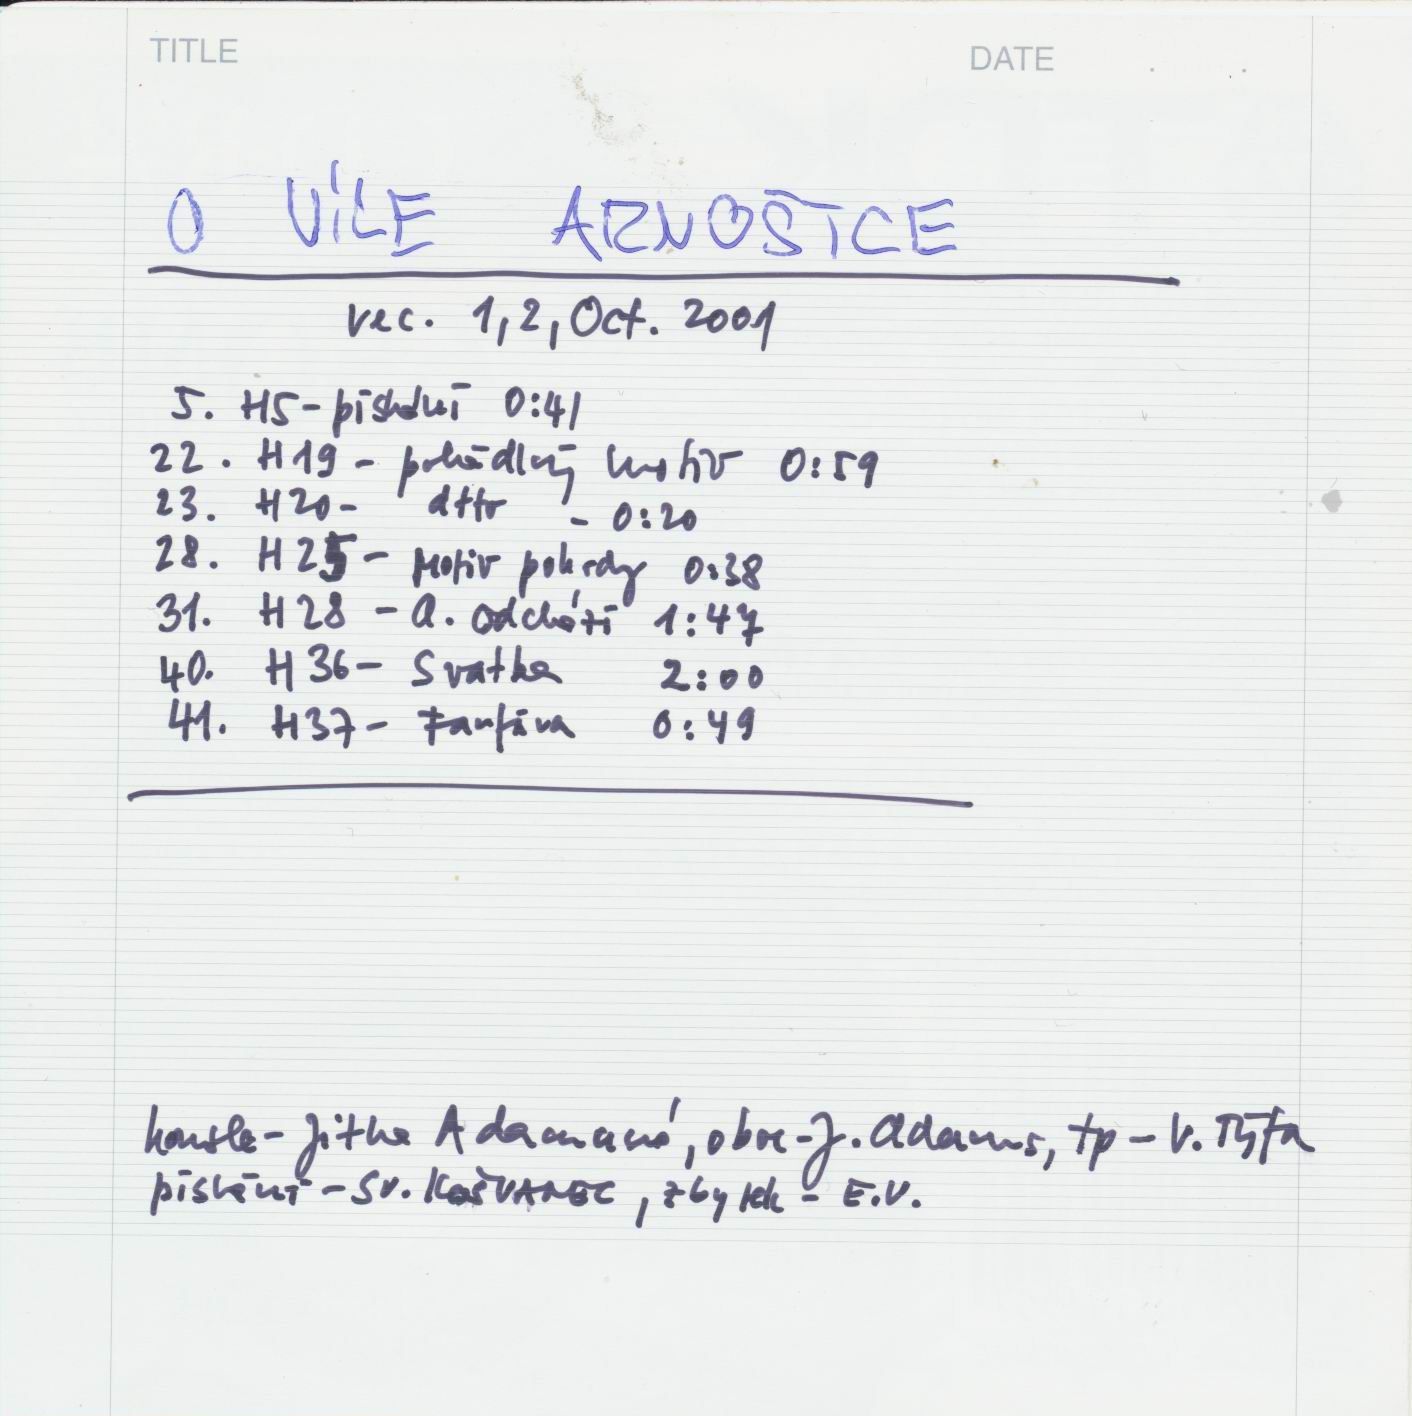 TITLE
DATE
O VÍLE ARNOŠTCE
rec. 1, 2, Oct. 2001
5. H5 - pískání 0:41
22. H19 - pohádkový motiv 0:59
23. H20 - dtto - 0:20
28. H25 - motiv pohády 0:38
31. H28 - A. odchází 1:47
40. H36 - Svatba 2:00
41. H37 - Fanfára 0:49
housle - Jitka Adamusová, oboe - J. Adamus, tp - V. Týfa
pískání - Sv. KOŠVANEC, zbytek - E.V.